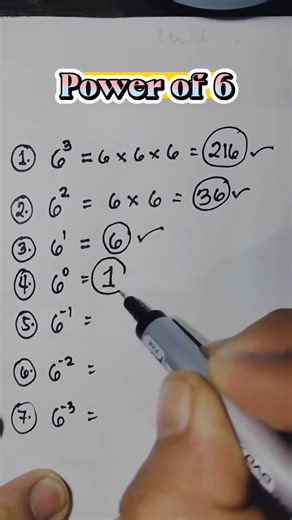 Power of 6
1. 6³ = 6 × 6 × 6 = 216 ✓
2. 6² = 6 × 6 = 36 ✓
3. 6¹ = 6 ✓
4. 6⁰ = 1
5. 6⁻¹ =
6. 6⁻² =
7. 6⁻³ =